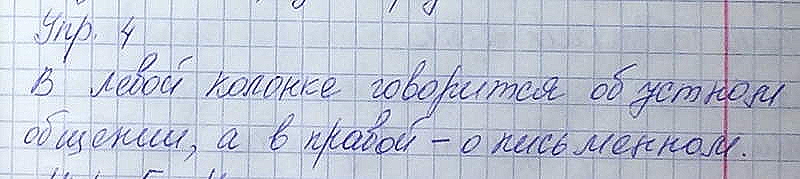 Упр. 4
В левой колонке говорится об устном
общении, а в правой – о письменном.